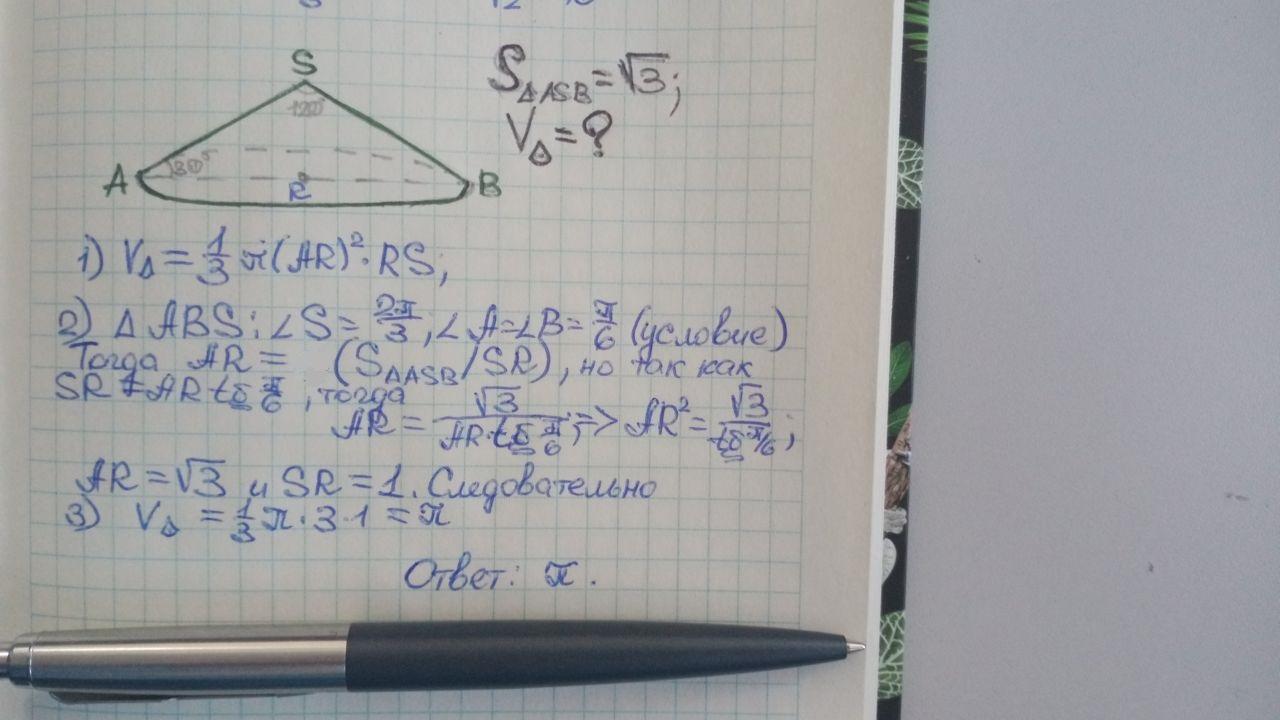 S
120°
S△ASB = √3;
V△ = ?
30°
A
R
B
1) V△ = 1/3 π(AR)²·RS;
2) △ABS: ∠S = 2π/3, ∠A=∠B= π/6 (условие)
Тогда AR = (S△ASB/SR), но так как
SR = AR tg π/6, тогда
AR = √3/(AR·tg π/6); => AR² = √3/(tg π/6);
AR = √3 и SR = 1. Следовательно
3) V△ = 1/3 π·3·1 = π
Ответ: π.